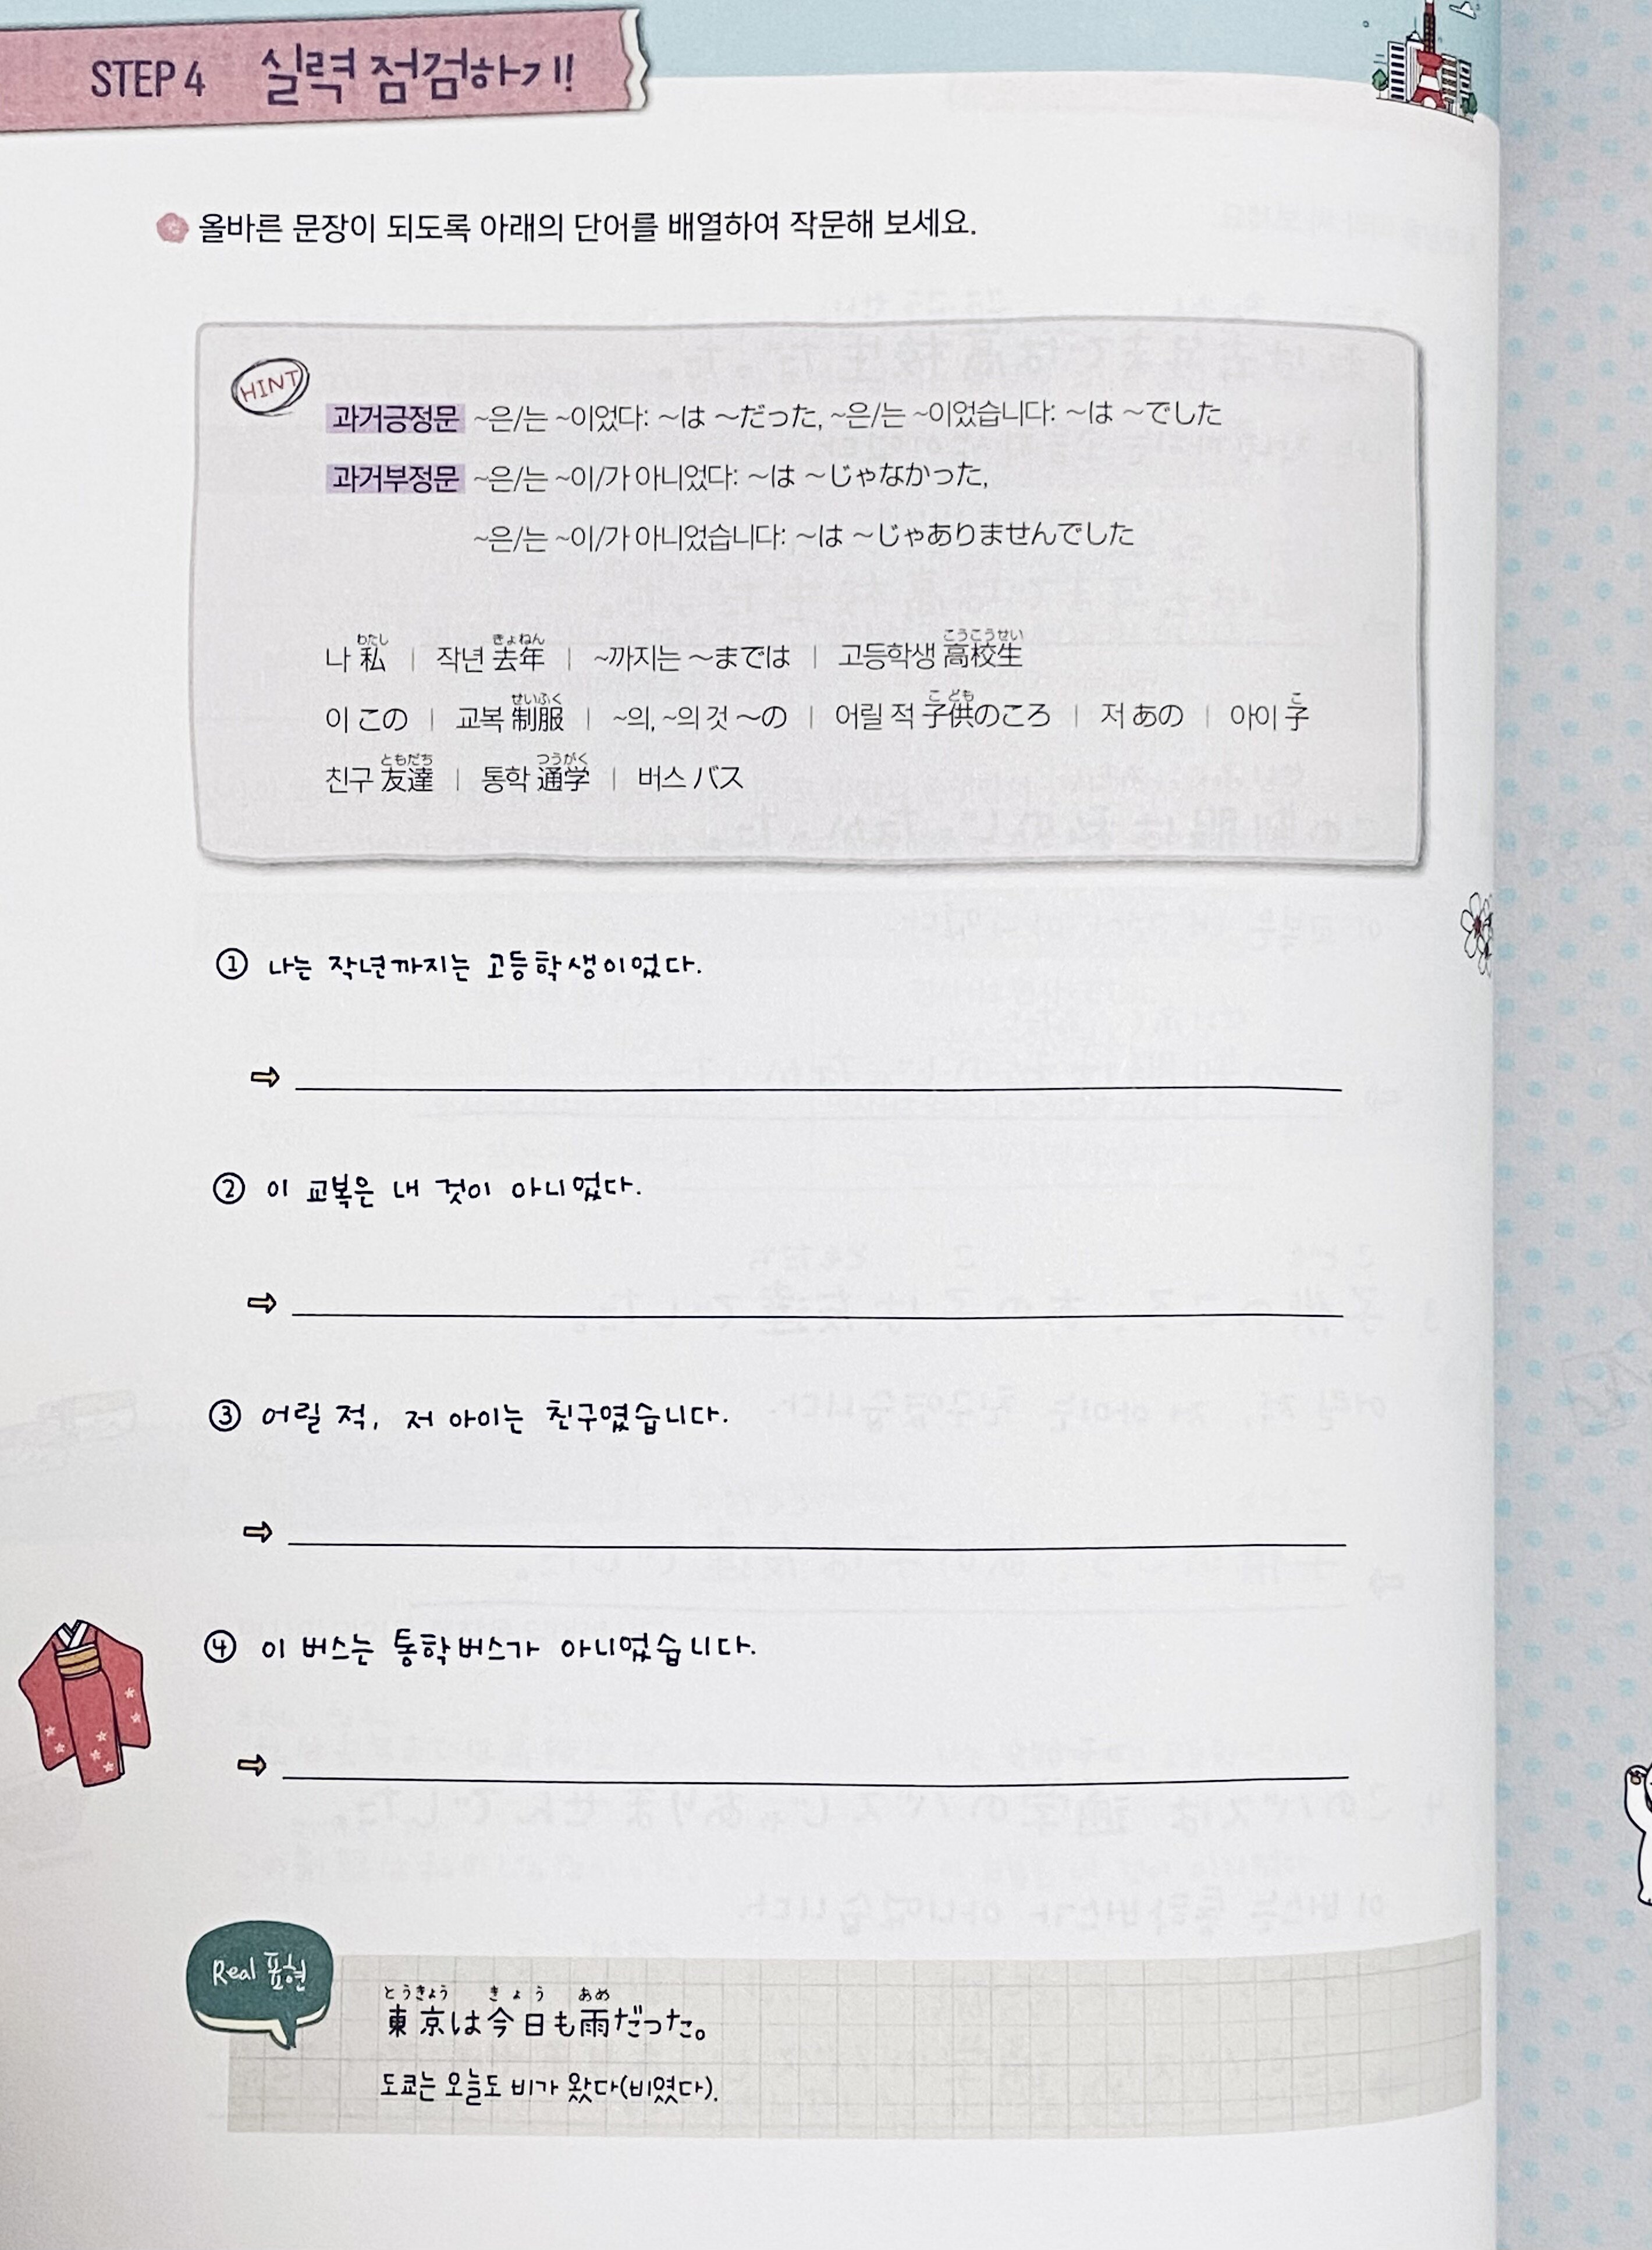 STEP 4 실력 점검하기!
올바른 문장이 되도록 아래의 단어를 배열하여 작문해 보세요.
HINT
과거긍정문 ~은/는 ~이었다: ~は ~だった, ~은/는 ~이었습니다: ~は ~でした
과거부정문 ~은/는 ~이/가 아니었다: ~は ~じゃなかった,
~은/는 ~이/가 아니었습니다: ~は ~じゃありませんでした
わたし きょねん こうこうせい
나 私 | 작년 去年 | ~까지는 ~までは | 고등학생 高校生
せいふく こども こ
이 この | 교복 制服 | ~의, ~의 것 ~の | 어릴 적 子供のころ | 저 あの | 아이 子
ともだち つうがく
친구 友達 | 통학 通学 | 버스 バス
① 나는 작년까지는 고등학생이었다.
⇨
② 이 교복은 내 것이 아니었다.
⇨
③ 어릴 적, 저 아이는 친구였습니다.
⇨
④ 이 버스는 통학버스가 아니었습니다.
⇨
Real 표현
とうきょう きょう あめ
東京は今日も雨だった。
도쿄는 오늘도 비가 왔다(비였다).